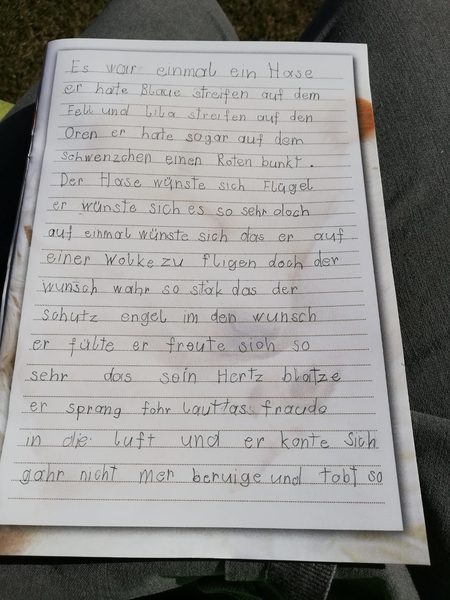 Es war einmal ein Hase
er hate Blaue streifen auf dem
Fell und lila streifen auf den
Oren er hate sogar auf dem
schwenzchen einen Roten bunkt.
Der Hase wünste sich Flügel
er wünste sich es so sehr doch
auf einmal wünste sich das er auf
einer Wolke zu fligen doch der
wunsch wahr so stak das der
schutz engel im den wunsch
er fülte er freute sich so
sehr das sein Hertz blatze
er sprang fohr lauttas fraude
in die luft und er konte sich
gahr nicht mer beruige und tobt so